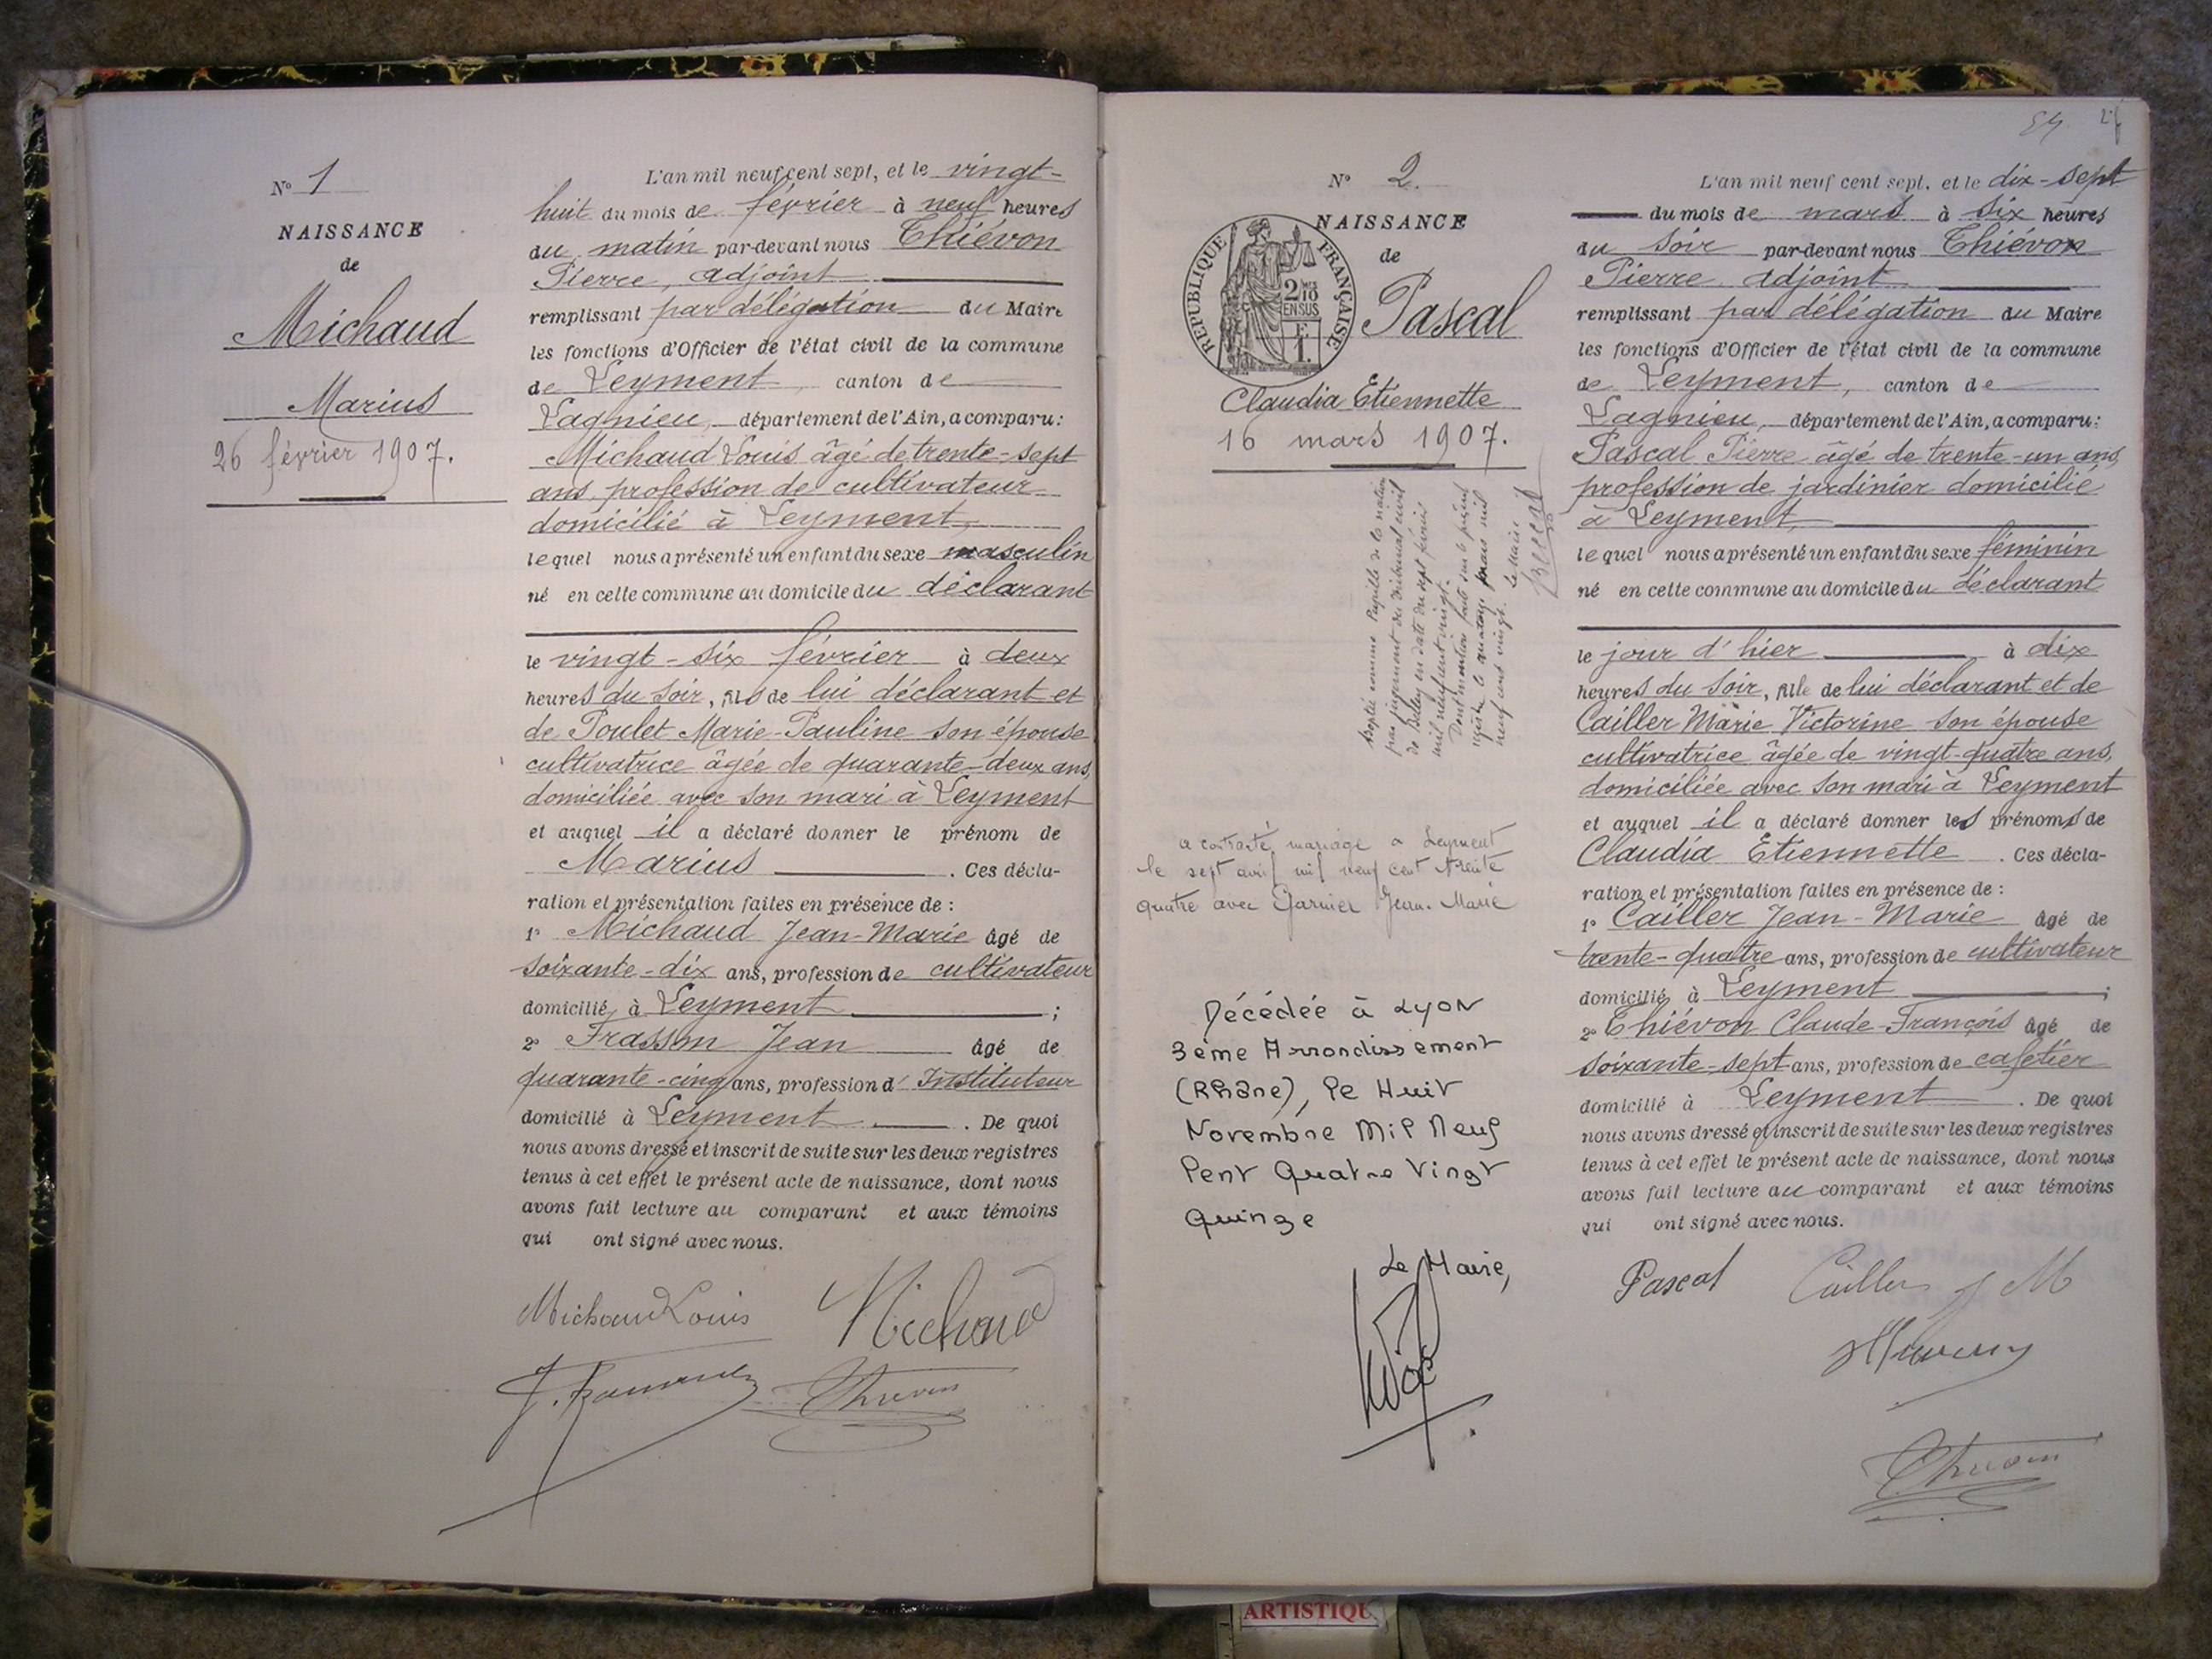 Nº 1
NAISSANCE
de
Michaud
Marius
26 février 1907.
L'an mil neuf cent sept, et le vingt-
huit du mois de février à neuf heures
du matin par-devant nous Thiévon
Pierre, adjoint
remplissant par délégation du Maire
les fonctions d'Officier de l'état civil de la commune
de Leyment, canton de
Lagnieu, département de l'Ain, a comparu:
Michaud Louis âgé de trente-sept
ans, profession de cultivateur
domicilié à Leyment,
lequel nous a présenté un enfant du sexe masculin
né en cette commune au domicile du déclarant
le vingt-six février à deux
heures du soir, fils de lui déclarant et
de Poulet Marie-Pauline son épouse
cultivatrice âgée de quarante-deux ans,
domiciliée avec son mari à Leyment
et auquel il a déclaré donner le prénom de
Marius. Ces décla-
ration et présentation faites en présence de :
1º Michaud Jean-Marie âgé de
soixante-dix ans, profession de cultivateur
domicilié à Leyment ;
2º Frasson Jean âgé de
quarante-cinq ans, profession d'Instituteur
domicilié à Leyment. De quoi
nous avons dressé et inscrit de suite sur les deux registres
tenus à cet effet le présent acte de naissance, dont nous
avons fait lecture au comparant et aux témoins
qui ont signé avec nous.
Michaud Louis Michaud
Thiévon
54
Nº 2.
NAISSANCE
de
REPUBLIQUE FRANÇAISE
2/10 EN SUS
1 F.
Pascal
Claudia Etiennette
16 mars 1907.
Adoptée comme Pupille de la nation
par jugement du tribunal civil
de Belley en date du sept février
mil neuf cent vingt.
Dont mention faite sur le présent
registre le quatorze mars mil
neuf cent vingt.
Le Maire
a contracté mariage à Leyment
le sept avril mil neuf cent trente
quatre avec Garnier Jean-Marie
Décédée à Lyon
3ème Arrondissement
(Rhône), le Huit
Novembre Mil Neuf
Cent Quatre Vingt
Quinze
Le Maire,
L'an mil neuf cent sept, et le dix-sept
du mois de mars à six heures
du soir par-devant nous Thiévon
Pierre, adjoint
remplissant par délégation du Maire
les fonctions d'Officier de l'état civil de la commune
de Leyment, canton de
Lagnieu, département de l'Ain, a comparu:
Pascal Pierre âgé de trente-un ans,
profession de jardinier domicilié
à Leyment,
lequel nous a présenté un enfant du sexe féminin
né en cette commune au domicile du déclarant
le jour d'hier à dix
heures du soir, fille de lui déclarant et de
Cailler Marie Victorine son épouse
cultivatrice âgée de vingt-quatre ans,
domiciliée avec son mari à Leyment
et auquel il a déclaré donner les prénoms de
Claudia Etiennette. Ces décla-
ration et présentation faites en présence de :
1º Cailler Jean-Marie âgé de
trente-quatre ans, profession de cultivateur
domicilié à Leyment ;
2º Thiévon Claude-François âgé de
soixante-sept ans, profession de cafetier
domicilié à Leyment. De quoi
nous avons dressé et inscrit de suite sur les deux registres
tenus à cet effet le présent acte de naissance, dont nous
avons fait lecture au comparant et aux témoins
qui ont signé avec nous.
Pascal Cailler J M
Thiévon
ARTISTIQU